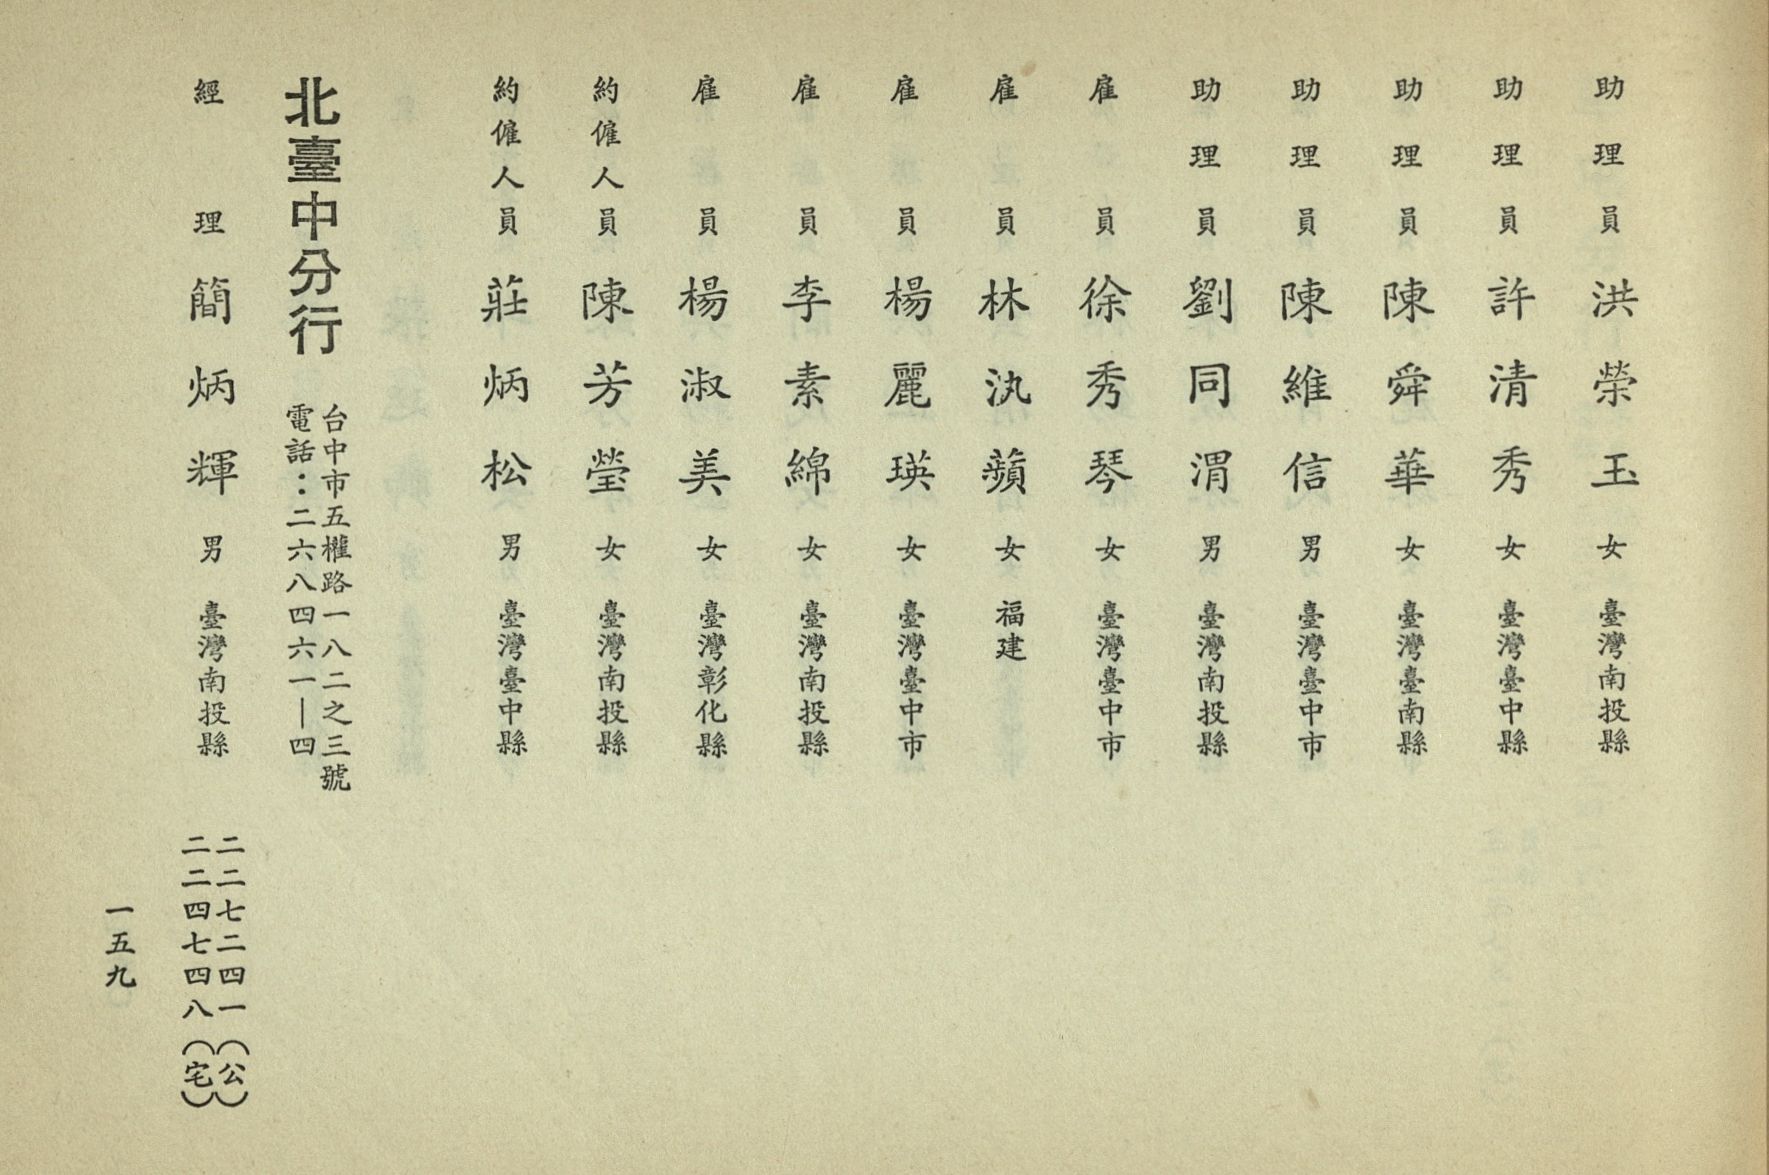 助理員 洪榮玉 女 臺灣南投縣
助理員 許清秀 女 臺灣臺中縣
助理員 陳舜華 女 臺灣臺南縣
助理員 陳維信 男 臺灣臺中市
助理員 劉同渭 男 臺灣南投縣
雇員 徐秀琴 女 臺灣臺中市
雇員 林氿蘋 女 福建
雇員 楊麗瑛 女 臺灣臺中市
雇員 李素綿 女 臺灣南投縣
雇員 楊淑美 女 臺灣彰化縣
約僱人員 陳芳瑩 女 臺灣南投縣
約僱人員 莊炳松 男 臺灣臺中縣
北臺中分行
台中市五權路一八二之三號
電話：二六八四六一｜四
經理 簡炳輝 男 臺灣南投縣
二二七二四一（公）
二二四七四八（宅）
一五九